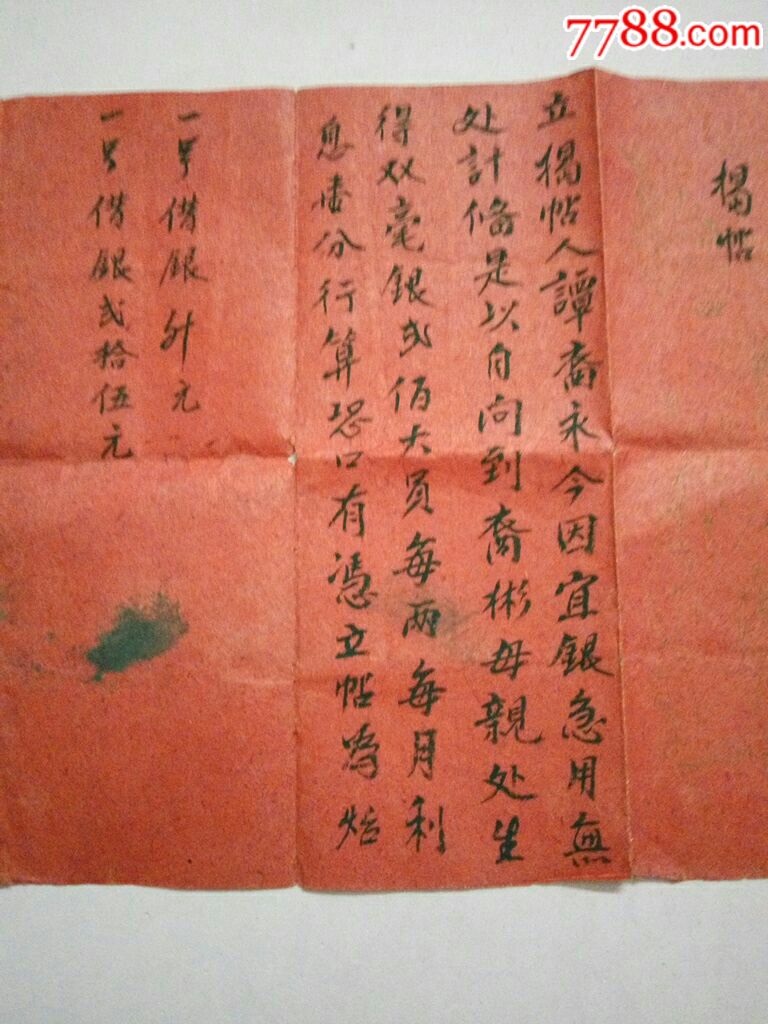 7788.com
揭帖
立揭帖人譚裔永今因宜銀急用無
处計俻是以自问到裔彬母親处生
得双毫銀弍佰大員每两每月利
息壹分行算恐口有憑立帖為炤
一号借銀升元
一号借銀弍拾伍元